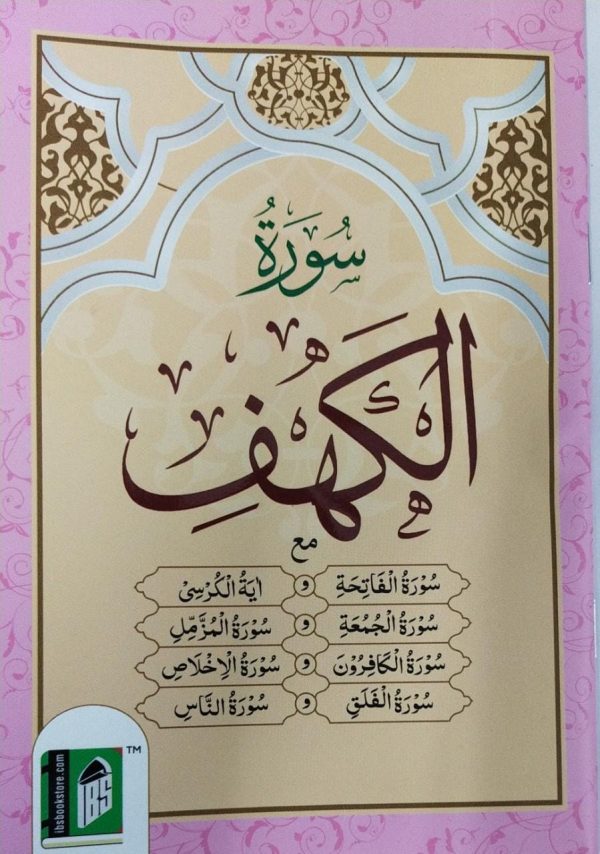 سُورَةُ
الْكَهْفِ
مع
سُورَةُ الْفَاتِحَةِ و اٰيَةُ الْكُرْسِیْ
سُورَةُ الْجُمُعَةِ و سُورَةُ الْمُزَّمِّلِ
سُورَةُ الْكَافِرُوْنَ و سُورَةُ الْاِخْلَاصِ
سُورَةُ الْفَلَقِ و سُورَةُ النَّاسِ
TM
IBS
ibsbookstore.com